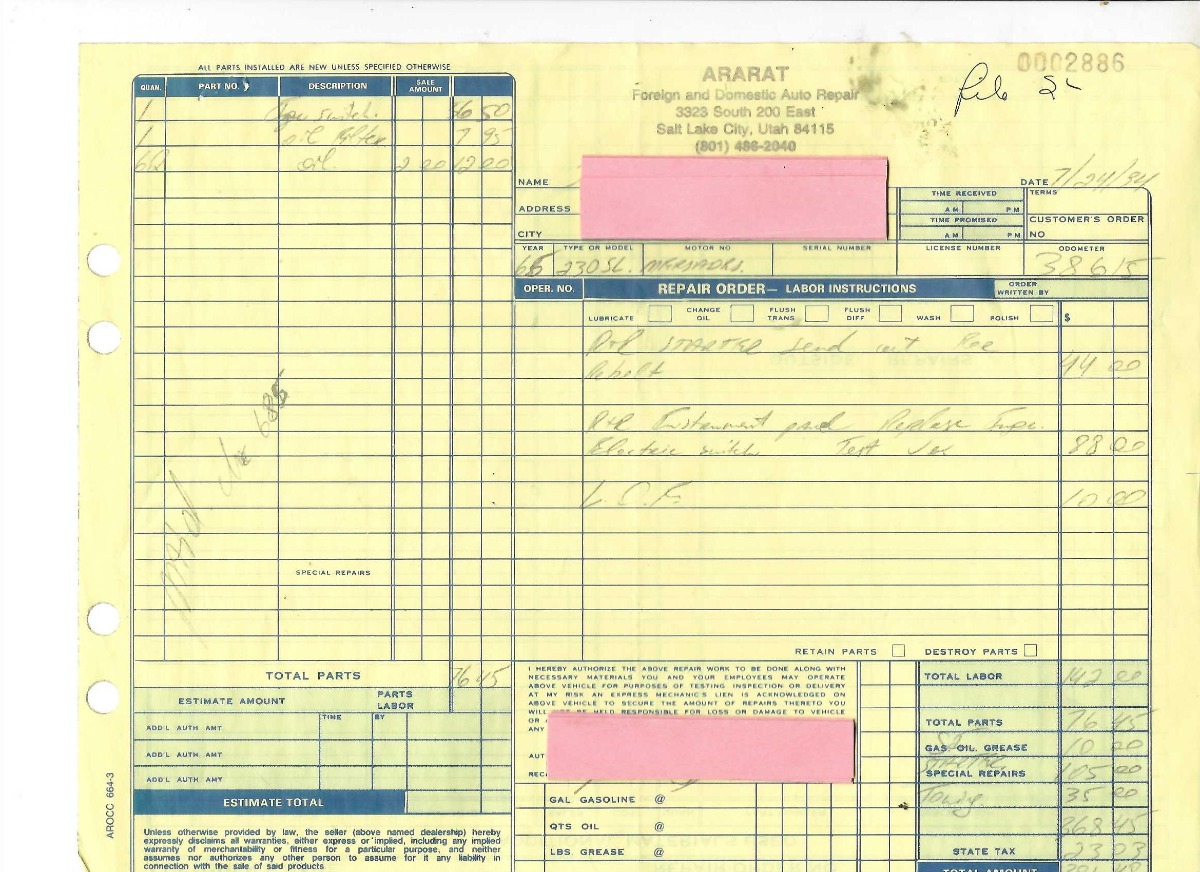 ALL PARTS INSTALLED ARE NEW UNLESS SPECIFIED OTHERWISE
QUAN. PART NO. DESCRIPTION SALE AMOUNT
1 switch. 56 50
1 oil filter 7 95
6Q oil. 2 00 12 00
0002886
ARARAT
Foreign and Domestic Auto Repair
3323 South 200 East
Salt Lake City, Utah 84115
(801) 486-2040
NAME
DATE 7/24/94
ADDRESS
CITY
TIME RECEIVED
A M P M
TIME PROMISED
A M P M
TERMS
CUSTOMER'S ORDER NO
YEAR TYPE OR MODEL MOTOR NO SERIAL NUMBER LICENSE NUMBER ODOMETER
65 230SL. MERSADRS. 38615
OPER. NO. REPAIR ORDER— LABOR INSTRUCTIONS ORDER WRITTEN BY
LUBRICATE CHANGE OIL FLUSH TRANS FLUSH DIFF WASH POLISH $
R+R STARTER Send out For
Rebolt 44 00
R+R Instrument panel Replase
Electric switch Test 88 00
L.O.F. 10 00
paid
SPECIAL REPAIRS
RETAIN PARTS DESTROY PARTS
TOTAL PARTS 76 45
ESTIMATE AMOUNT PARTS LABOR
TIME BY
ADD'L AUTH AMT
ADD'L AUTH AMT
ADD'L AUTH AMT
ESTIMATE TOTAL
AROCC 664-3
Unless otherwise provided by law, the seller (above named dealership) hereby
expressly disclaims all warranties, either express or implied, including any implied
warranty of merchantability or fitness for a particular purpose, and neither
assumes nor authorizes any other person to assume for it any liability in
connection with the sale of said products.
I HEREBY AUTHORIZE THE ABOVE REPAIR WORK TO BE DONE ALONG WITH
NECESSARY MATERIALS YOU AND YOUR EMPLOYEES MAY OPERATE
ABOVE VEHICLE FOR PURPOSES OF TESTING INSPECTION OR DELIVERY
AT MY RISK AN EXPRESS MECHANIC'S LIEN IS ACKNOWLEDGED ON
ABOVE VEHICLE TO SECURE THE AMOUNT OF REPAIRS THERETO YOU
WILL NOT BE HELD RESPONSIBLE FOR LOSS OR DAMAGE TO VEHICLE
OR
ANY
AUT
REC
GAL GASOLINE @
QTS OIL @
LBS. GREASE @
TOTAL LABOR 142 00
TOTAL PARTS 76 45
GAS. OIL. GREASE 10 00
SPECIAL REPAIRS 105 00
Towing 35 00
368 45
STATE TAX 23 03
TOTAL AMOUNT 391 48